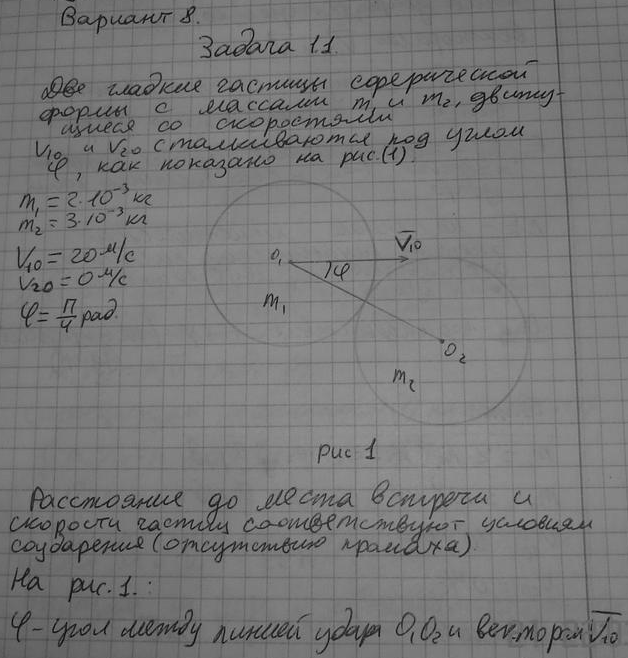 Вариант 8.
Задача 11
Две гладкие частицы сферической
формы с массами m₁ и m₂, движу-
щиеся со скоростями
V₁₀ и V₂₀ сталкиваются под углом
φ, как показано на рис.(1).
m₁ = 2·10⁻³ кг
m₂ = 3·10⁻³ кг
V₁₀ = 20 м/с
V₂₀ = 0 м/с
φ = π/4 рад.
O₁ φ V̅₁₀
m₁
O₂
m₂
рис 1
Расстояние до места встречи и
скорости частиц соответствуют условиям
соударения (отсутствию промаха).
На рис. 1. :
φ - угол между линией удара O₁O₂ и вектором V̅₁₀